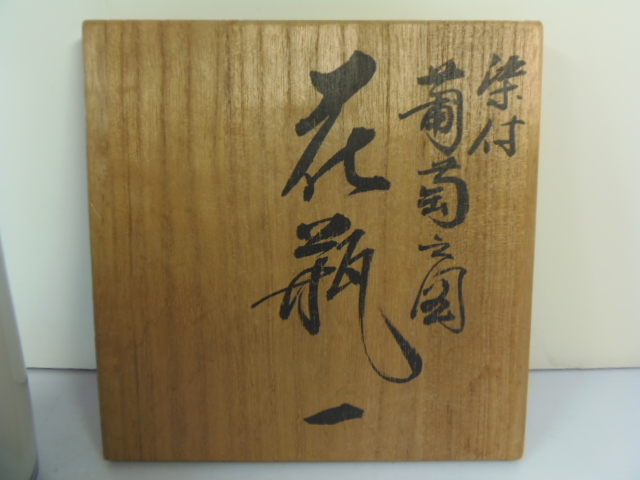 染付
葡萄之図
花瓶
一